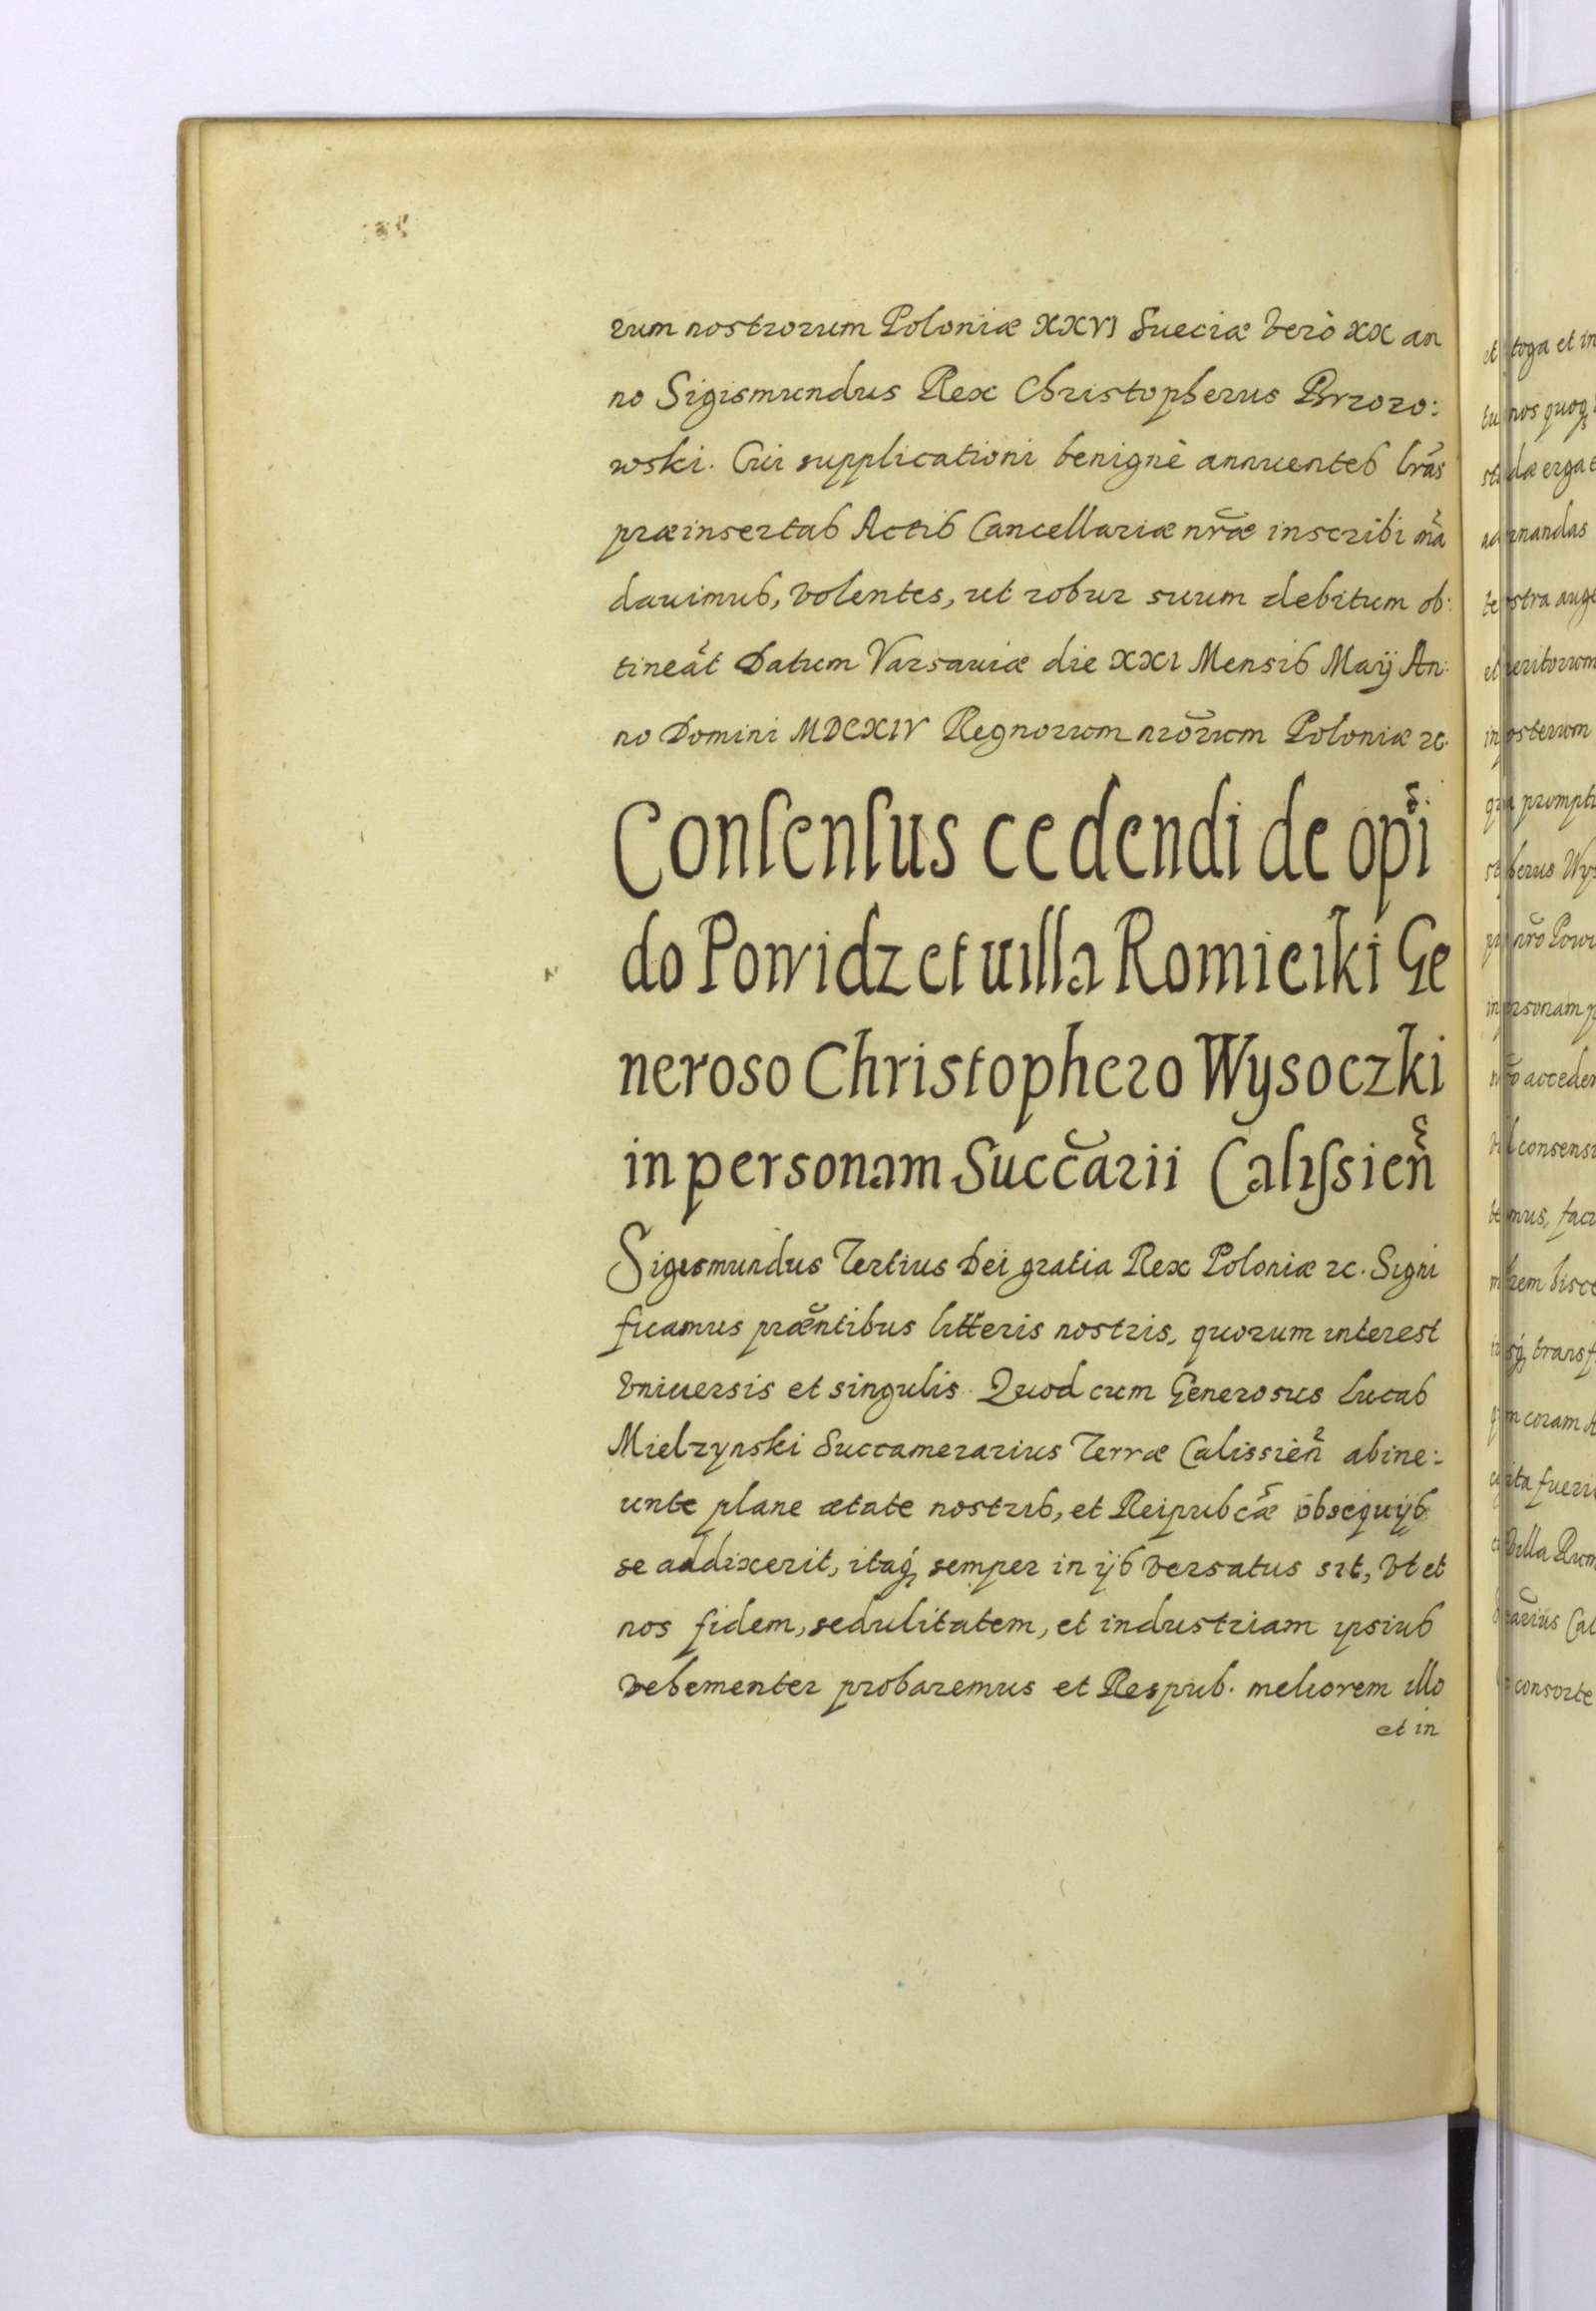 rum nostrorum Poloniæ XXVI Sueciæ verò XX an
no Sigismundus Rex Christopherus Brzozo:
wski. Cui supplicationi benignè annuentes lr̃as
præinsertas Actis Cancellariæ nr̃æ inscribi mã
dauimus, volentes, ut robur suum debitum ob:
tineãt Datum Varsauiæ die XXI Mensis Maÿ An:
no Domini MDCXIV Regnorum nr̃orum Poloniæ ꝛc.
Conſenſus cedendi de opi̇̃
do Powidz et uilla Romieiki Ge
neroso Christophero Wysoczki
in personam Succ̃arii Caliſsieñ
Sigismundus Tertius Dei gratia Rex Poloniæ ꝛc. Signi
ficamus præ̃ntibus litteris nostris, quorum interest
vniuersis et singulis. Quod cum Generosus Lucas
Mielzynski Succamerarius Terræ Calissieñ ab ine:
unte plane ætate nostris, et Reipubcæ̃ obsequijs
se addixerit, itaq́ꝫ semper in ijs versatus sit, vt et
nos fidem, sedulitatem, et industriam ipsius
vehementer probaremus et Respub. meliorem illo
et in
et toga et in
nos quoqꝫ
dæ erga e
nandas
stra auge
eritorum
in posterum
prompti
pherus Wys
nr̃o Powi
in personam p
acceden
consens
mus, facu
transf
m coram A
ita fueri
villa Rum
Cal
consorte